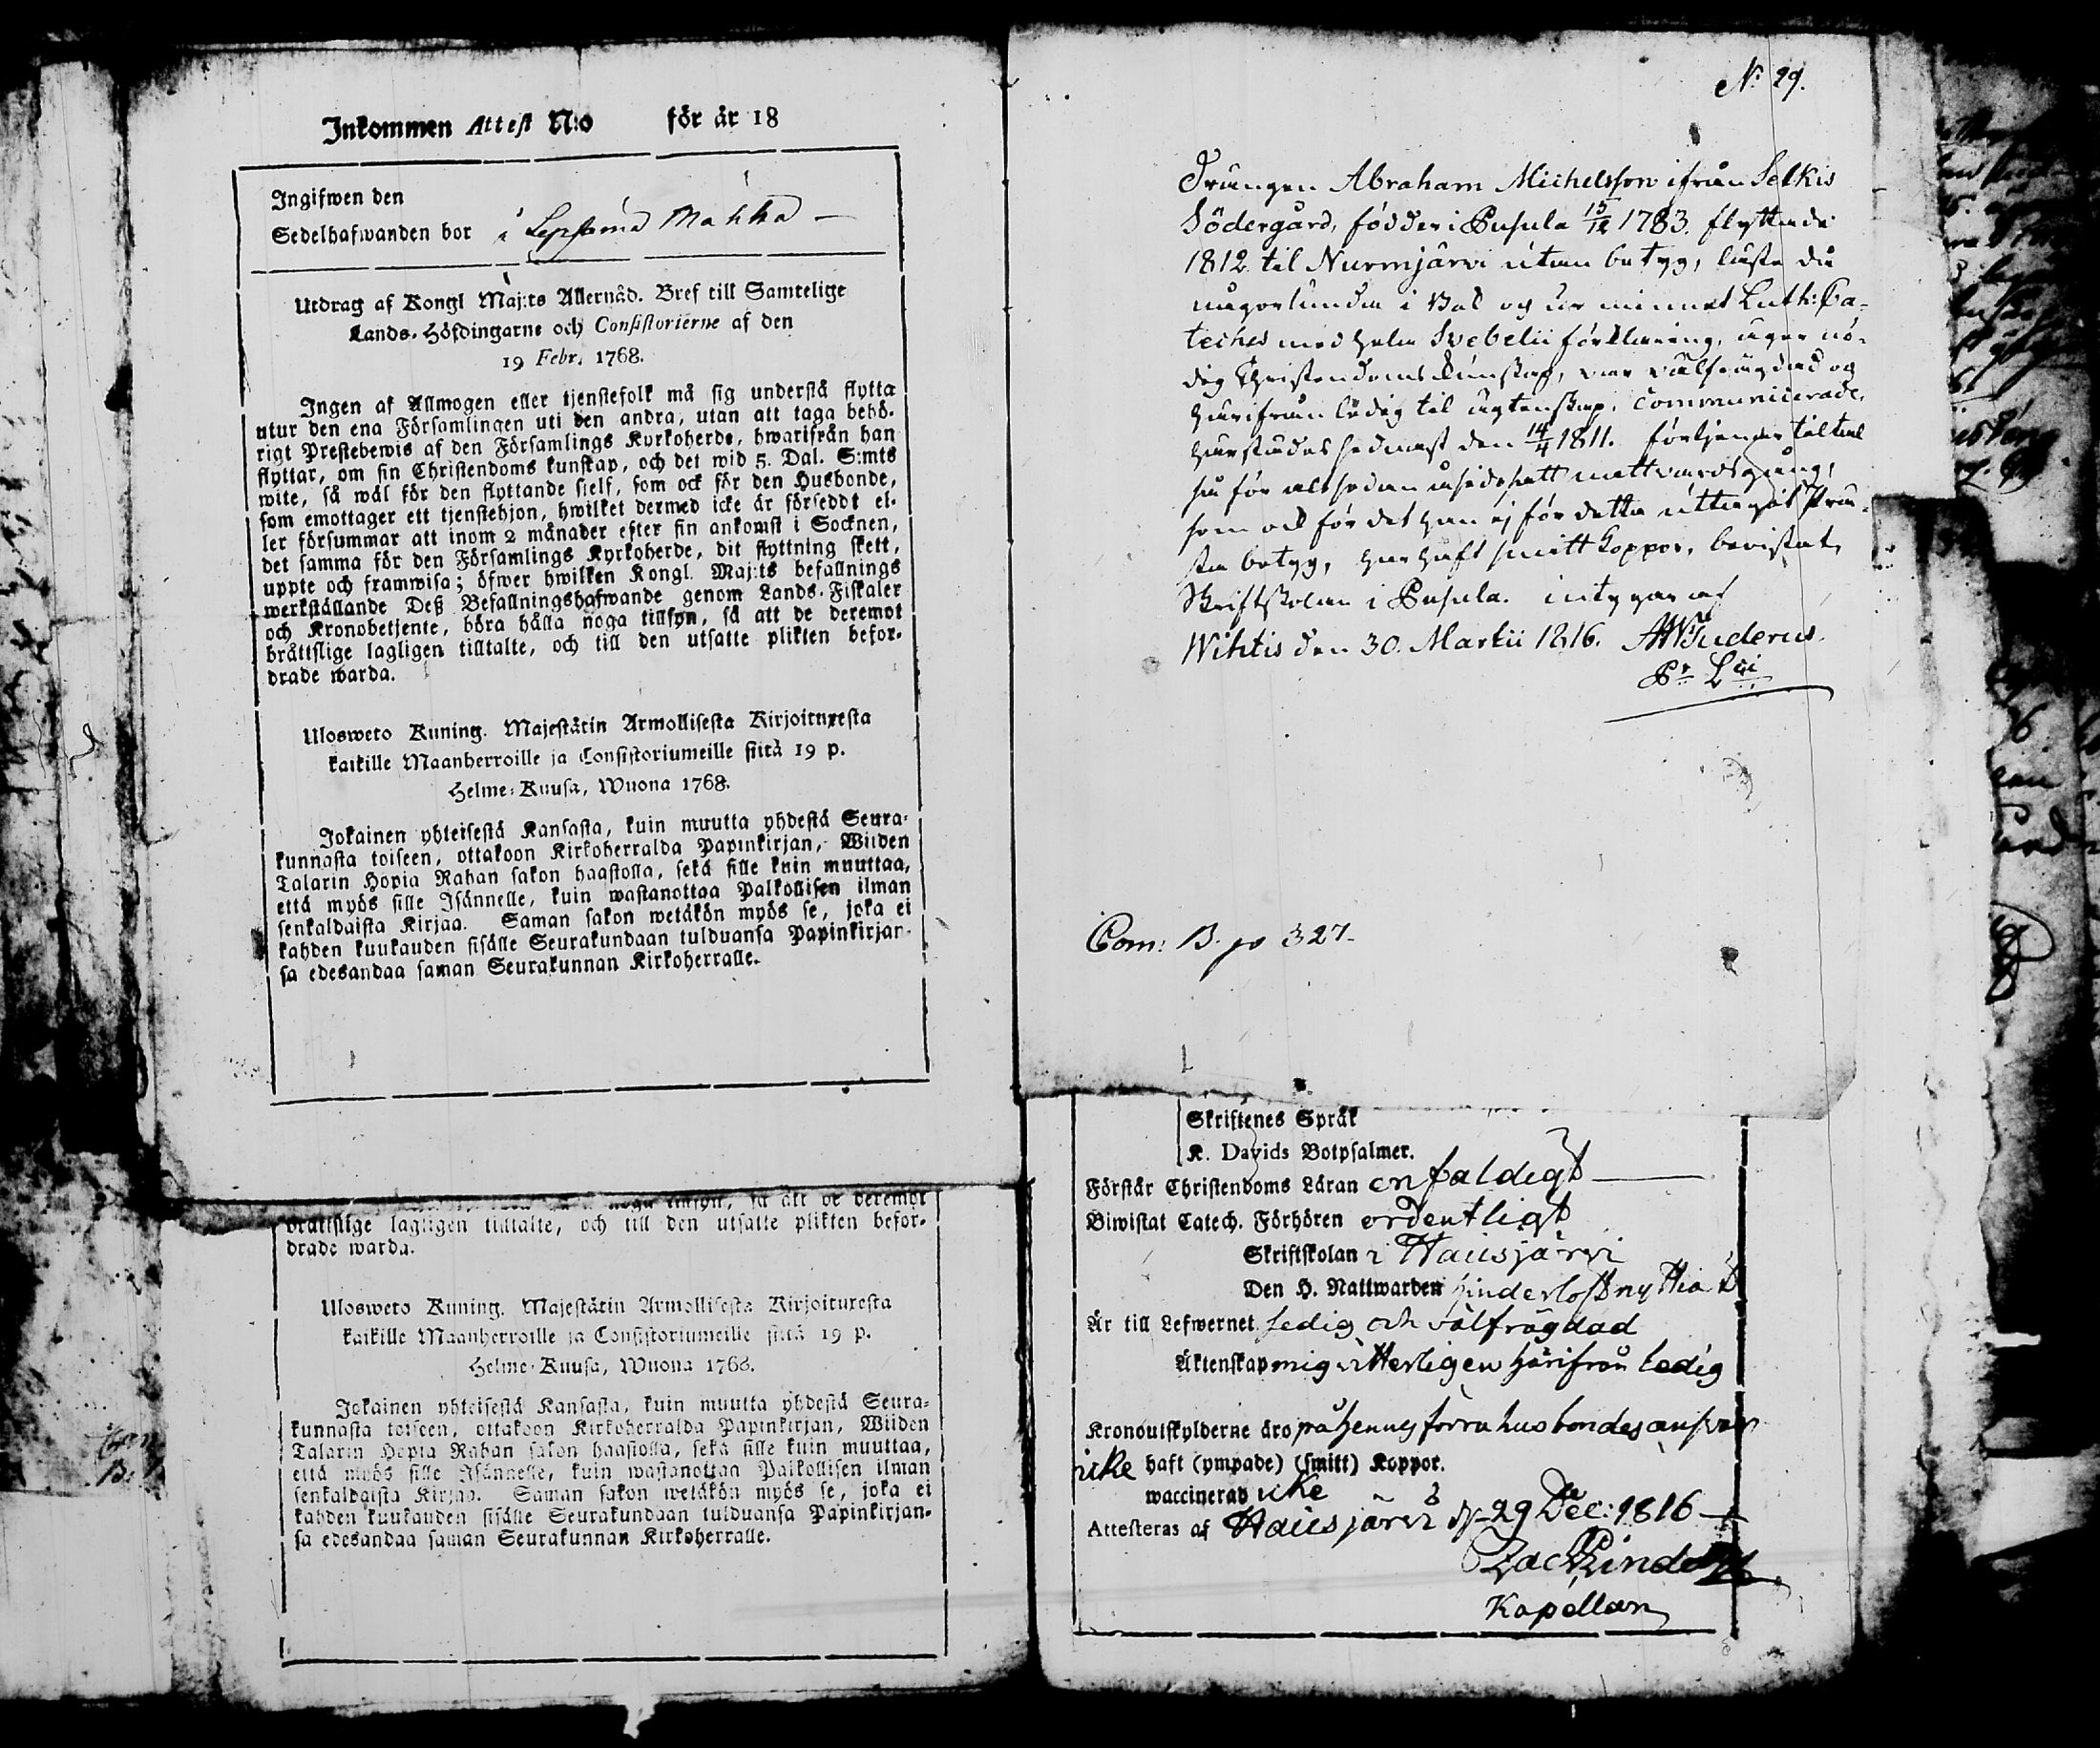 Inkommen Attest N:o för år 18
Ingifwen den
Sedelhafwanden bor i Lepsämä Mahha —
Utdrag af Kongl Maj:ts Allernåd. Bref till Samtelige
Lands-Höfdingarne och Consistorierne af den
19 Febr. 1768.
Ingen af Allmogen eller tjenstefolk må sig understå flytta
utur den ena Församlingen uti den andra, utan att taga behö-
rigt Prestebewis af den Församlings Kyrkoherde, hwarifrån han
flyttar, om sin Christendoms kunskap, och det wid 5. Dal. S:mts
wite, så wäl för den flyttande sielf, som ock för den Husbonde,
som emottager ett tjenstehjon, hwilket dermed icke är försedt el-
ler försummar att inom 2 månader efter sin ankomst i Socknen,
det samma för den Församlings Kyrkoherde, dit flyttning skett,
uppte och framwisa; öfwer hwilken Kongl. Maj:ts befallnings
werkställande Deß Befallningshafwande genom Lands-Fiskaler
och Kronobetjente, böra hålla noga tillsyn, så att de deremot
bråttslige lagligen tilltalte, och till den utsatte plikten befor-
drade warda.
Ulosweto Kuning. Majestätin Armollisesta Kirjoituxesta
kaikille Maanherroille ja Consistoriumeille siitä 19 p.
Helme-Kuusa, Wuona 1768.
Jokainen yhteisestä Kansasta, kuin muutta yhdestä Seura-
kunnasta toiseen, ottakoon Kirkoherralda Papinkirjan, Wiiden
Talarin Hopia Rahan sakon haastolla, sekä sille kuin muuttaa,
että myös sille Isännelle, kuin wastanottaa Palkollisen ilman
senkaldaista Kirjaa. Saman sakon wetäkön myös se, joka ei
kahden kuukauden sisälle Seurakundaan tulduansa Papinkirjan-
sa edesandaa saman Seurakunnan Kirkoherralle.
noga tillsyn, så att de deremot
bråttslige lagligen tilltalte, och till den utsatte plikten befor-
drade warda.
Ulosweto Kuning. Majestätin Armollisesta Kirjoituxesta
kaikille Maanherroille ja Consistoriumeille siitä 19 p.
Helme-Kuusa, Wuona 1768.
Jokainen yhteisestä Kansasta, kuin muutta yhdestä Seura-
kunnasta toiseen, ottakoon Kirkoherralda Papinkirjan, Wiiden
Talarin Hopia Rahan sakon haastolla, sekä sille kuin muuttaa,
että myös sille Isännelle, kuin wastanottaa Palkollisen ilman
senkaldaista Kirjaa. Saman sakon wetäkön myös se, joka ei
kahden kuukauden sisälle Seurakundaan tulduansa Papinkirjan-
sa edesandaa saman Seurakunnan Kirkoherralle.
N:o 29.
Drängen Abraham Michelsson ifrån Selkis
Södergård, född i Pusula 15/12 1783. flyttade
1812 til Nurmjärvi utan betyg, läste då
någorlunda i Bok og ur minnet Luth: Ca-
teches med hela Svebelii förklaring, äger nö-
dig Christendoms kunskap, var välfrägdad og
härifrån ledig til ägtenskap, communicerade
härstädes sednast den 14/4 1811. förtjenar tiltal
så för alt sedan åsidosatt nattvardsgång,
som ock för det han ej för detta uttagit Prä-
sta betyg, har haft smitt koppor, bevistat
Skriftskolan i Pusula. intygar af
Wihtis den 30. Martii 1816. Juderus.
Com: B. p 327.
Skriftenes Språk
K. Davids Botpsalmer.
Förstår Christendoms Läran enfaldigt —
Biwistat Catech. Förhören ordentligt
Skriftskolan i Hausjärvi
Den H. Nattwarden hinderlöst nyttiat
Är till Lefwernet sedig och välfrägdad
Äktenskap mig vitterligen härifrån ledig
Kronoutskylderne äro på hennes förra husbondes answar
icke haft (ympade) (smitt) Koppor.
waccinerad icke
Attesteras af Hausjärvi d. 29 Dec: 1816
Kapellan